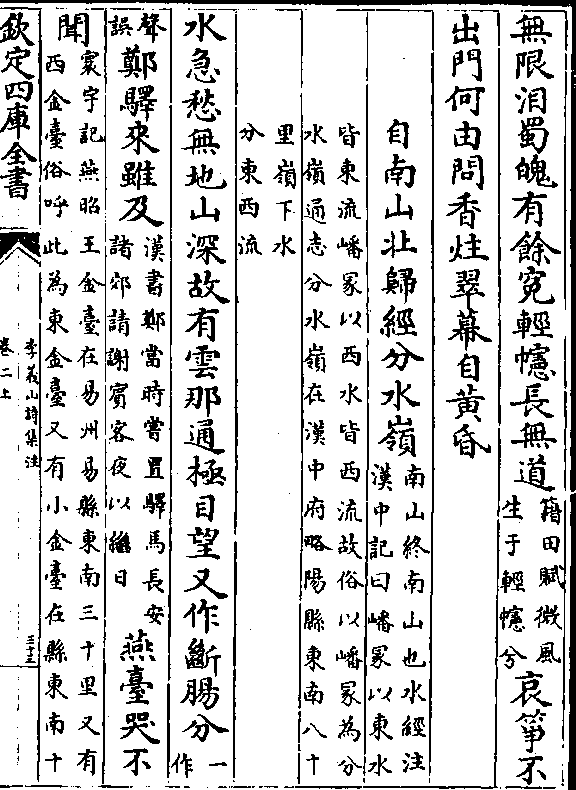 無限泪蜀魄有餘寃輕幰長無道
籍田賦微風
生于輕幰兮
哀箏不
出門何由問香炷翠幕自黃昏
自南山北歸經分水嶺
南山終南山也水經注
漢中記曰嶓冢以東水
皆東流嶓冢以西水皆西流故俗以嶓冢為分
水嶺通志分水嶺在漢中府略陽縣東南八十
里嶺下水
分東西流
水急愁無地山深故有雲那通極目望又作斷腸分
一
作
聲
誤
鄭驛來雖及
漢書鄭當時嘗置驛馬長安
諸郊請謝賓客夜以繼日
燕臺哭不
聞
寰宇記燕昭王金臺在易州易縣東南三十里又有
西金臺俗呼此為東金臺又有小金臺在縣東南十
欽定四庫全書
李義山詩集注
卷二上
三十三